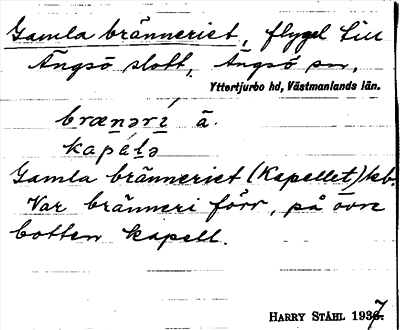 Gamla bränneriet, flygel till
Ängsö slott, Ängsö sn,
Yttertjurbo hd, Västmanlands län.
brænəri ä.
kapélə
Gamla bränneriet (Kapellet) kb.
Var bränneri förr, på övre
botten kapell.
HARRY STÅHL 1937